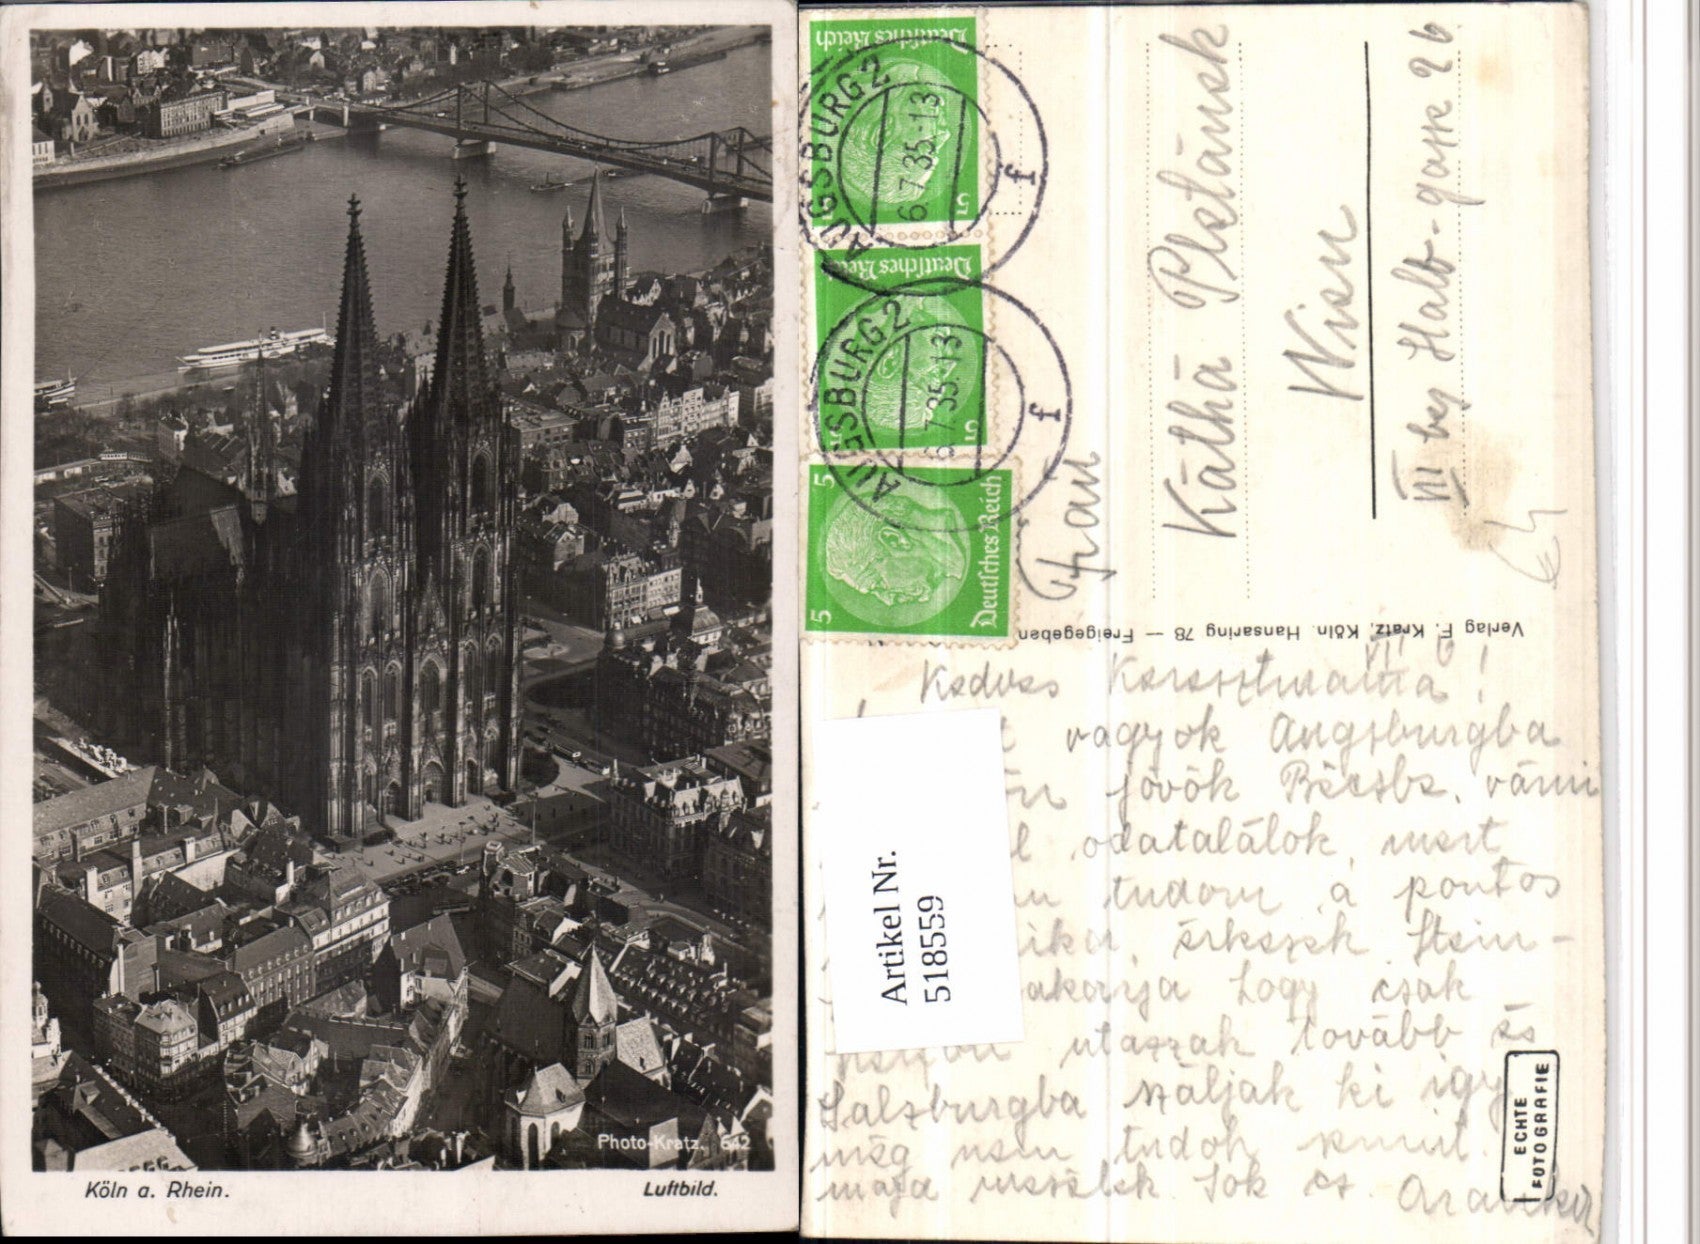 Photo-Kratz. 642
Köln a. Rhein.
Luftbild.
Deutsches Reich
5
AUGSBURG 2
6.7.35.-13
f
Deutsches Reich
5
AUGSBURG 2
6.7.35.-13
f
5
5
Deutsches Reich
Frau
Käthä
Wien
VII
Halb-gasse 26
Verlag F. Kratz, Köln. Hansaring 78 — Freigegeben
Kedves Keresztmama!
vagyok Augsburgba
jövök Bécsbe, várni
odatalálok, mert
tudom a pontos
érkezek. Stein-
akarja hogy csak
utazzak tovább és
Salzburgba szálljak ki így
még nem tudok semmit.
maja mesélek. Sok cs.
Artikel Nr.
518559
ECHTE
FOTOGRAFIE